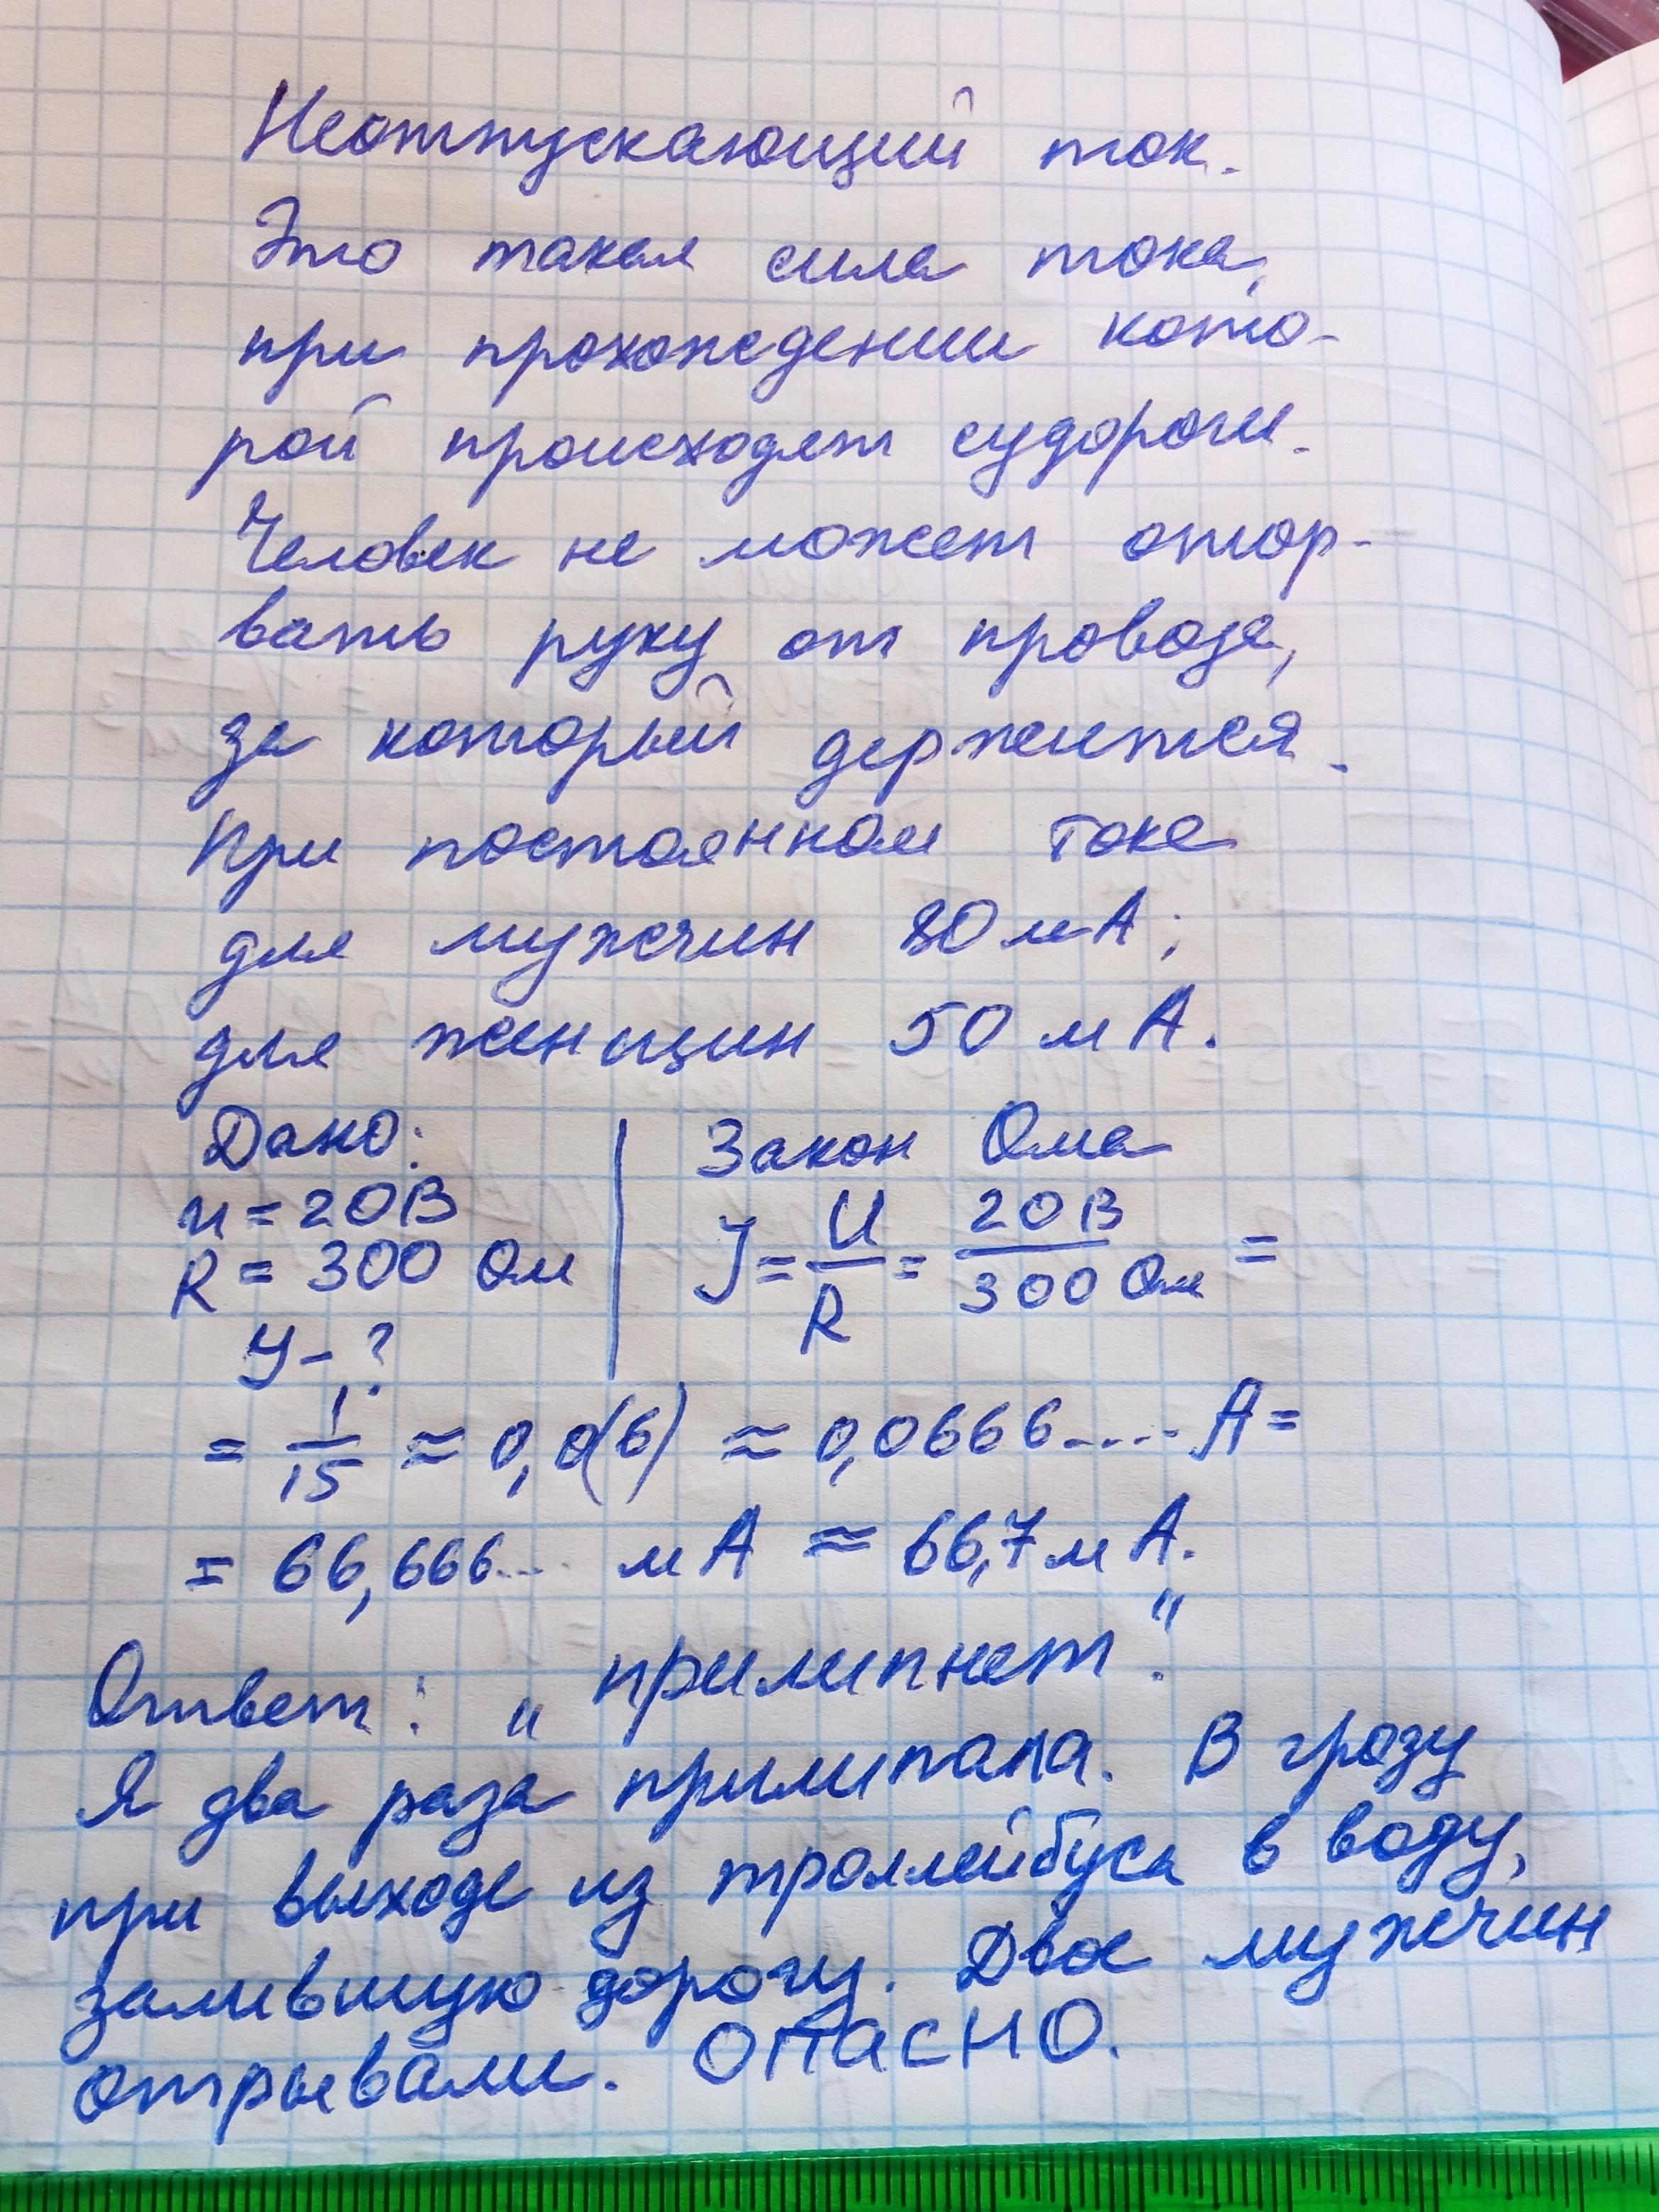 Неотпускающий ток.
Это такая сила тока,
при прохождении кото-
рой происходят судороги.
Человек не может отор-
вать руку от провода,
за который держится.
При постоянном токе
для мужчин 80 мА;
для женщин 50 мА.
Дано: | Закон Ома
u = 20В
R = 300 Ом
J = U/R = 20В/300 Ом =
У - ?
= 1/15 ≈ 0,0(6) ≈ 0,0666.... А =
= 66,666... мА ≈ 66,7 мА.
Ответ: „прилипнет“.
Я два раза прилипала. В грозу
при выходе из троллейбуса в воду,
залившую дорогу. Двое мужчин
отрывали. ОПАСНО.